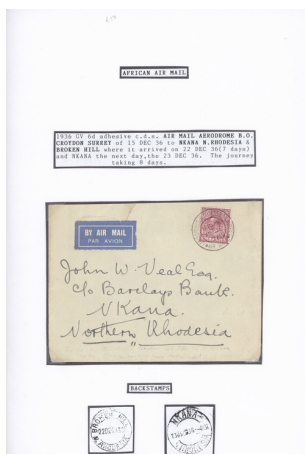 AFRICAN AIR MAIL
1936 GV 6d adhesive c.d.s. AIR MAIL AERODROME B.O.
CROYDON SURREY of 15 DEC 36 to NKANA N.RHODESIA &
BROKEN HILL where it arrived on 22 DEC 36(7 days)
and NKANA the next day,the 23 DEC 36. The journey
taking 8 days.
BY AIR MAIL
PAR AVION
John W. Veal Esq.
c/o Barclays Bank.
NKana.
Northern Rhodesia
BACKSTAMPS
BROKEN HILL
N. RHODESIA
NKANA